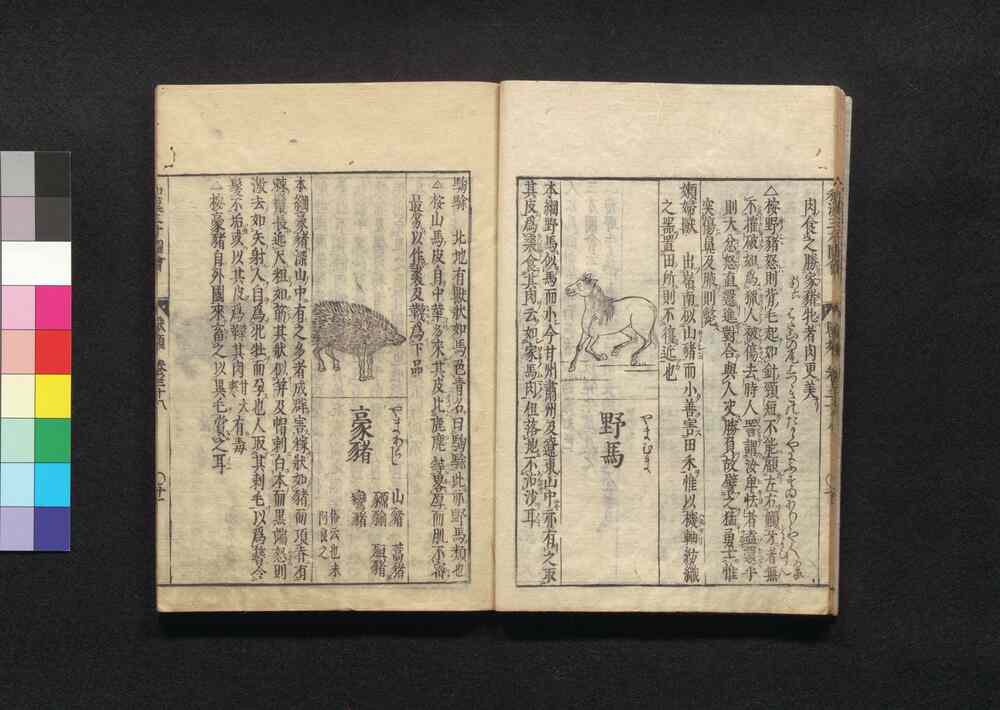 肉食之勝家猪牝者肉更美
△桉野猪怒則背毛起如針頸短不能顧左右觸牙者無
不摧破如爲獵人被傷去時人詈謂汝卑怯者盍還乎
則大忿怒直還進對合與人決勝負故譬之猛勇士惟
突傷鼻及腋則斃
嬾婦獸 出嶺南似山猪而小善害田禾惟以機軸紡織
之器置田所則不復近也
やまむま
野馬
本綱野馬似馬而小今甘州肅州及遼東山中亦有之取
其皮爲裘食其肉云如家馬肉但落地不沾沙耳
騊駼 北地有獸狀如馬色青名曰騊駼此亦野馬類也
△桉山馬皮自中華多來其皮比鹿麂
最多以作裘及韈爲下品
やまあらし
豪豬
山豬
蒿豬
鸞豬
俗云也末
阿良之
本綱豪豬深山中有之多者成群害稼狀如豬而項脊有
棘鬣長近尺粗如筯其狀似笄及帽刺白本而黑端怒則
激去如矢射人自爲牝牡而孕也人取其刺毛以爲簪令
髮不垢或以其皮爲鞾其肉 甘大寒 有毒
△桉豪豬自外國來畜之以異毛賞之耳